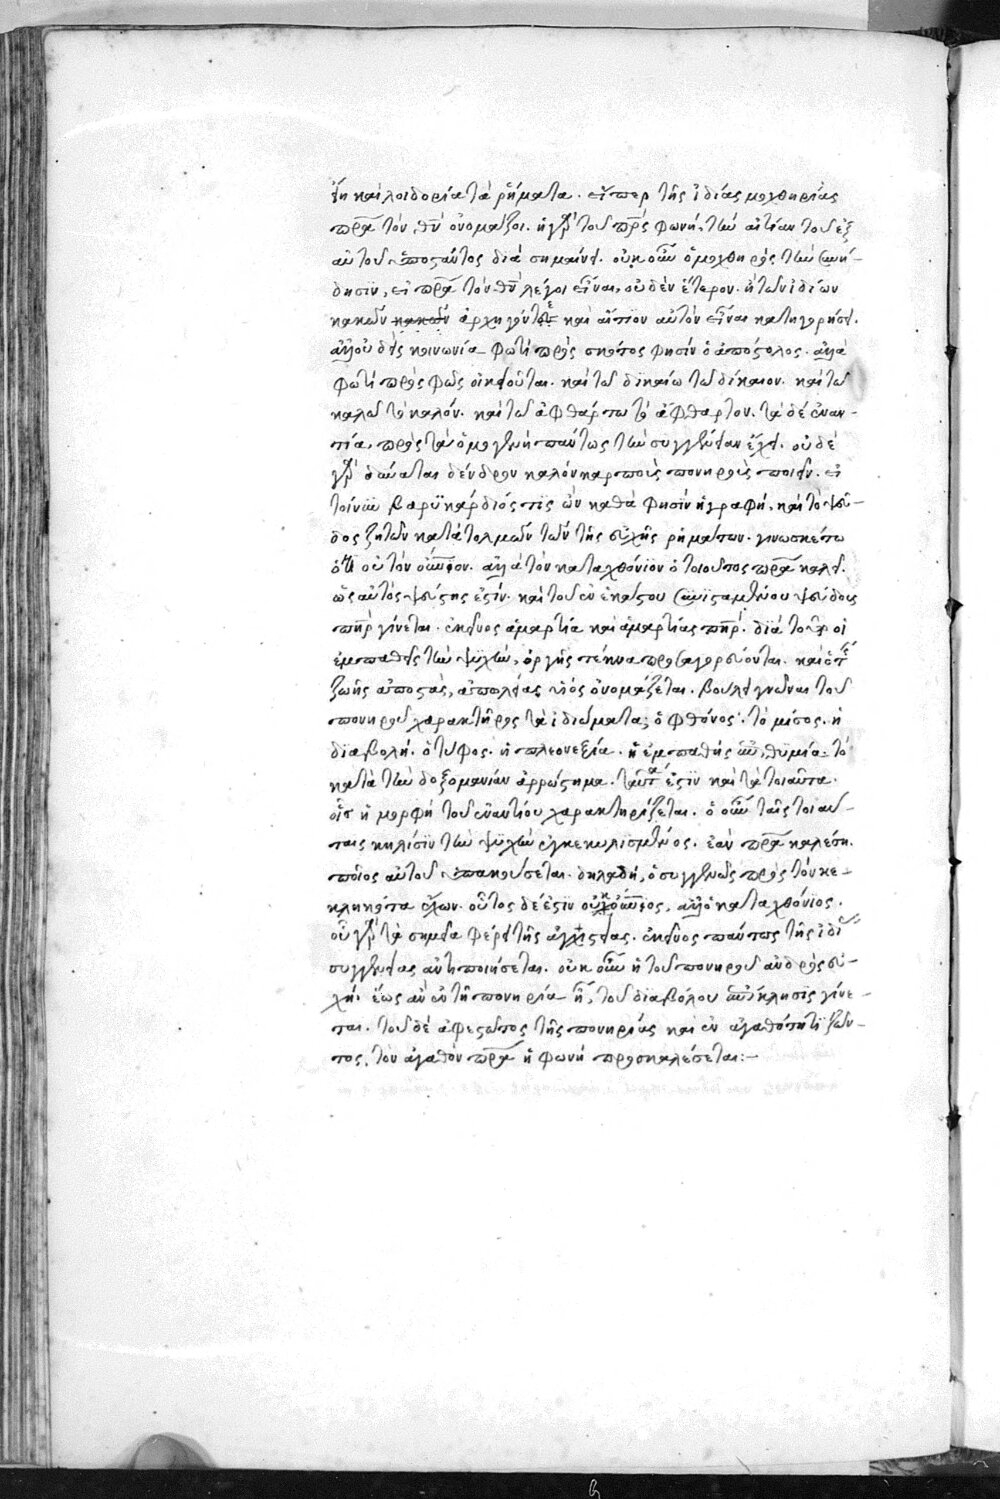 ἂν καὶ λοιδορία τὰ ῥήματα. εἴπερ τῆς ἰδίας μοχθηρίας
πρα τὸν θν ὀνομάζοι. ἡ γὰρ τοῦ πρς φωνὴ, τὴν αἰτίαν τοῦ ἐξ
αὐτοῦ ὑποστάντος διασημαίνει. οὐκοῦν ὁ μοχθηρὸς τὴν συνεί-
δησιν, εἰ πρα τὸν θν λέγοι εἶναι, οὐδὲν ἕτερον. ἢ τῶν ἰδίων
κακῶν κακῶν ἀρχηγόν τε καὶ αἴτιον αὐτὸν εἶναι κατηγορήσει.
ἀλλ' οὐδεὶς κοινωνία φωτὶ πρὸς σκότος φησὶν ὁ ἀπόστολος. ἀλλὰ
φωτὶ πρὸς φῶς οἰκειοῦται. καὶ τῶ δικαίω τὸ δίκαιον. καὶ τῶ
καλῶ τὸ καλόν. καὶ τῶ ἀφθάρτω τὸ ἄφθαρτον. τὰ δὲ ἐναν-
τία, πρὸς τὰ ὁμογενῆ πάντως τὴν συγγένειαν ἔχει. οὐδὲ
γὰρ δύναται δένδρον καλὸν καρποὺς πονηροὺς ποιεῖν. εἰ
τοίνυν βαρυκάρδιός τις ὢν καθά φησιν ἡ γραφὴ, καὶ τὸ ψεῦ-
δος ζητῶν κατατολμῶν τῶν τῆς εὐχῆς ῥημάτων. γινωσκέτω
ὅτι οὐ τὸν οὐνιον. ἀλλὰ τὸν καταχθόνιον ὁ τοιοῦτος πρα καλεῖ.
ὡς αὐτὸς ψεύστης ἐστίν. καὶ τοῦ ἐν ἑκάστου συνισταμένου ψεύδους
πηρ γίνεται. ἐκεῖνος ἁμαρτία καὶ ἁμαρτίας πηρ. διὰ τοῦτο οἱ
ἐμπαθεῖς τὴν ψυχὴν, ὀργῆς τέκνα προσαγορεύονται. καὶ ὁ τῆς
ζωῆς ἀποστὰς, ἀπωλείας υἱὸς ὀνομάζεται. βούλει γνῶναι τοῦ
πονηροῦ χαρακτῆρος τὰ ἰδιώματα; ὁ φθόνος. τὸ μῖσος. ἡ
διαβολή. ὁ τῦφος. ἡ πλεονεξία. ἡ ἐμπαθὴς ἐπιθυμία. τὸ
κατὰ τὴν δοξομανίαν ἀρρώστημα. ταῦτά ἐστιν καὶ τὰ τοιαῦτα.
οἷς ἡ μορφὴ τοῦ ἐναντίου χαρακτηρίζεται. ὁ οὖν ταῖς τοιαύ-
ταις κηλῖσιν τὴν ψυχὴν ἐγκεκυλισμένος. ἐὰν πρα καλέση.
ποῖος αὐτοῦ ὑπακούσεται. δηλαδὴ, ὁ συγγενῶς πρὸς τὸν κε-
κληκότα ἔχων. οὗτος δέ ἐστιν οὐχ ὁ οὐνιος, ἀλλ' ὁ καταχθόνιος.
οὗ γὰρ τὰ σημεῖα φέρει τῆς ἀγχιστείας. ἐκεῖνος πάντως τῆς ἰδίας
συγγενείας ἀντιποιήσεται. οὐκοῦν ἡ τοῦ πονηροῦ ἀνδρὸς εὐ-
χὴ. ἕως ἂν ἐν τῆ πονηρία ἦ, τοῦ διαβόλου ἐπίκλησις γίνε-
ται. τοῦ δὲ ἀφεστῶτος τῆς πονηρίας καὶ ἐν ἀγαθότητι ζῶν-
τος, τὸν ἀγαθὸν πρα ἡ φωνὴ προσκαλέσεται:—